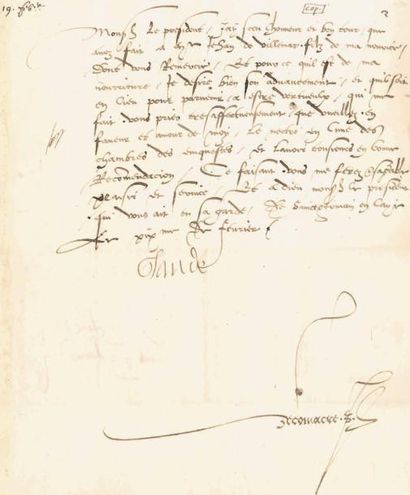 19. fev. r.
Cop.
2
Mons. Le president / Jay sceu lhonneur et bon tour, que
avez fait a Jehan de Villemar filz de ma nourrice /
Dont vous Remercie / Et pource quil est de ma
nourriture / Je desire bien son advancement / et quil soit
en lieu pour parvenir, a estre vertueulx, qui me
fait vous prier tres affectueusement, que vueillez, en
faveur et amour de moy, le mectre en lune des
chambres des enquestes, et lavoir tousiours en bonne
Recommendacion, Ce faisant vous me ferez aggreable
plaisir et service, Et a dieu mons. le president
qui vous ait en sa garde, De Sainct germain en Laye
Le xix me de fevrier
Claude